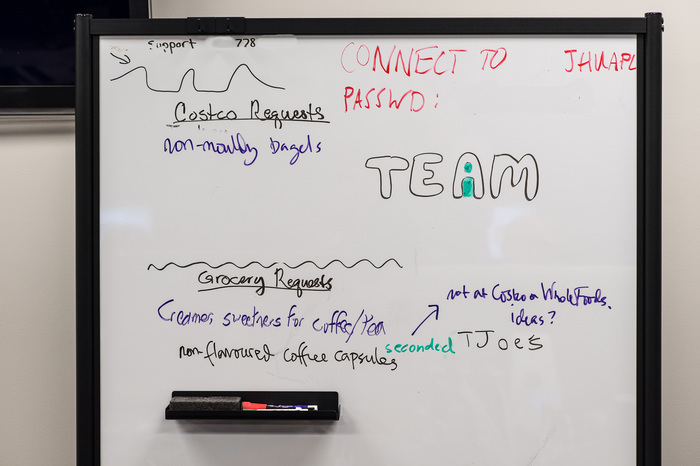 support 778
CONNECT TO JHUAPL
PASSWD:
Costco Requests
non-mouldy bagels
TEAM
Grocery Requests
Creamer sweetners for coffee/tea
non-flavoured coffee capsules
seconded
not at Costco or WholeFoods.
ideas?
TJoes